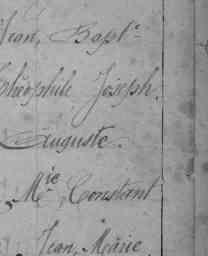 Jean, Bapte
Théophile Joseph.
Auguste.
Mie Constant
Jean, Marie